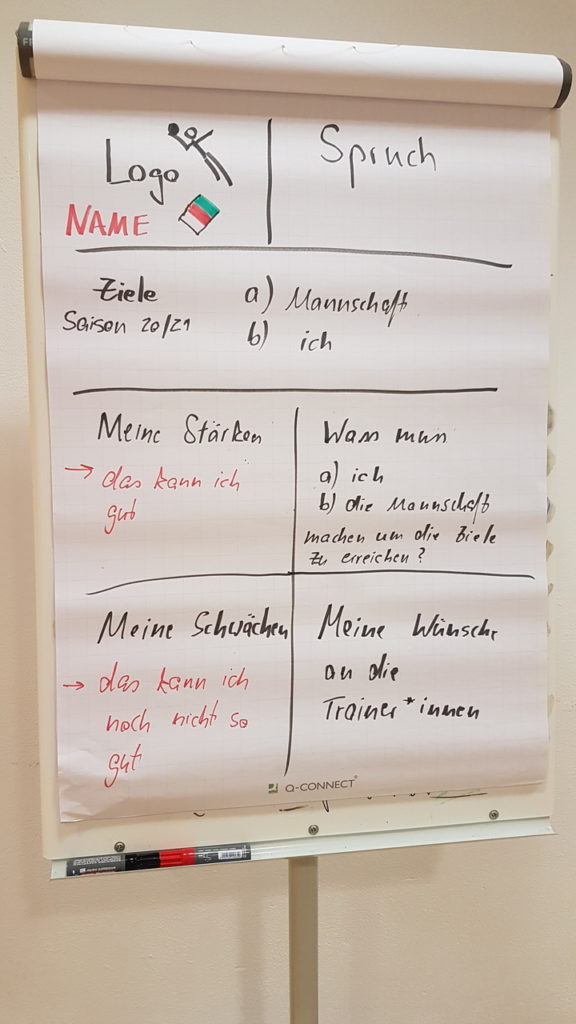 Logo
NAME
Spruch
Ziele
Saison 20/21
a) Mannschaft
b) ich
Meine Stärken
→ das kann ich
gut
Was muss
a) ich
b) die Mannschaft
machen um die Ziele
zu erreichen?
Meine Schwächen
→ das kann ich
noch nicht so
gut
Meine Wünsche
an die
Trainer*innen
Q-CONNECT